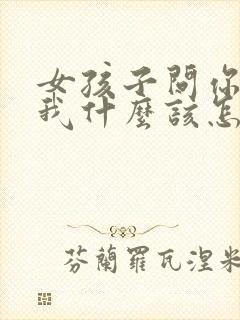 女孩子問你
我什麼該怎
芬蘭羅瓦涅米